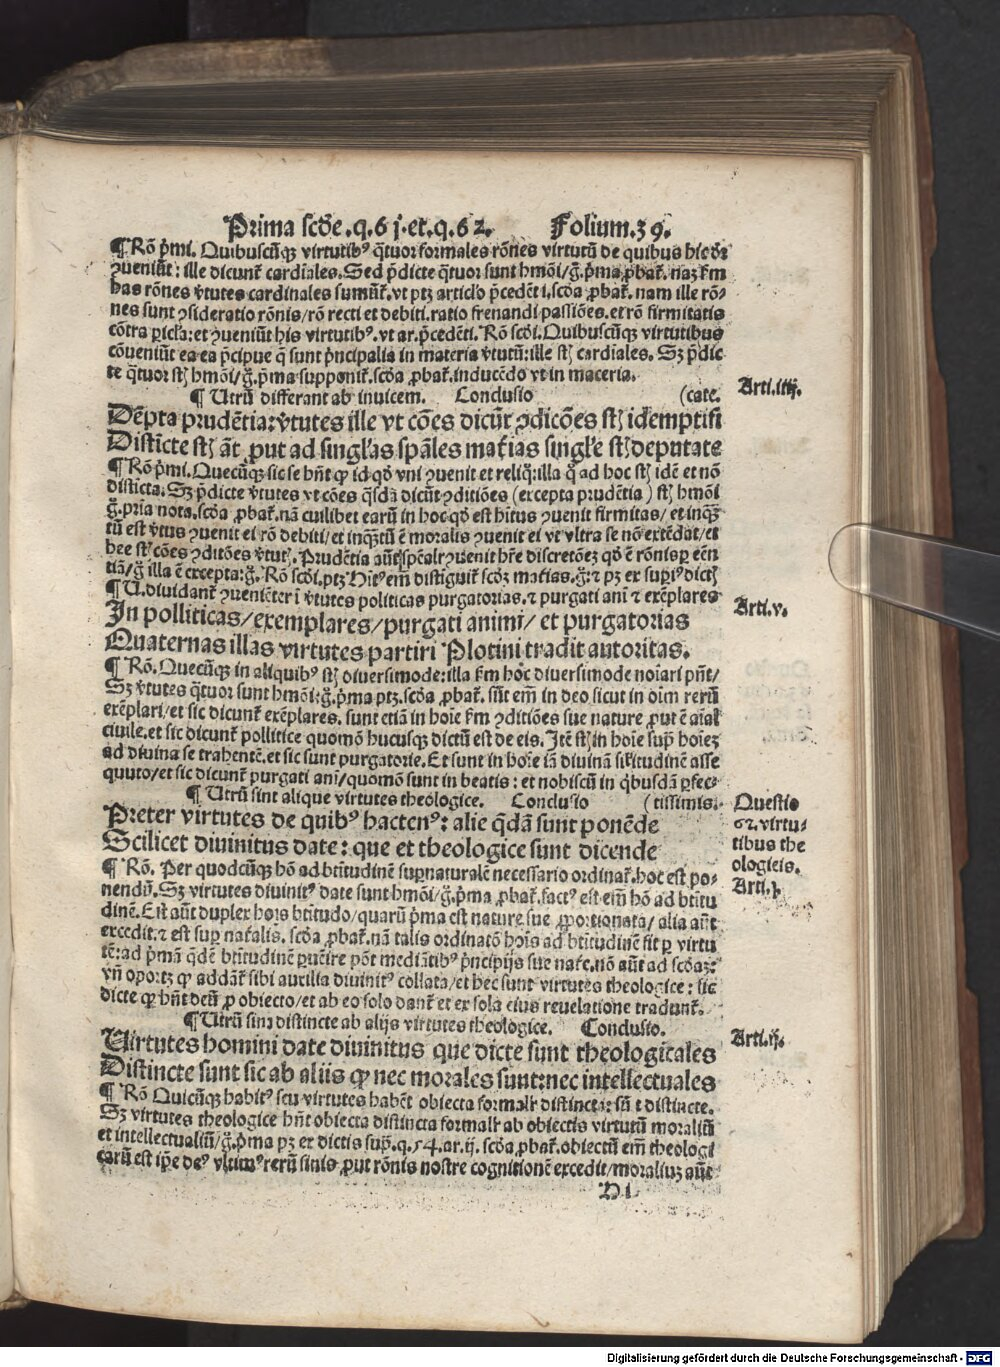 Prima scd̄e.q.6j.et.q.62. Folium.39.
¶ Rō p̄mi. Quibuscūq; virtutibꝰ q̄tuor formales rōnes virtutū de quibus hic dr̄
ꝯueniūt: ille dicunt̄ cardīales. Sed p̄dicte q̄tuor sunt hmōi/g̊. p̄ma ꝓbat̄. naʒ ẜm
has rōnes v̄tutes cardinales sumūt̄. vt ptʒ articl'o p̄cedēt i. scd̄a ꝓbat̄. nam ille rō⸗
nes sunt ꝯsideratio rōnis/rō recti et debiti. ratio frenandi passiōes. et rō firmitatis
cōtra pic̄la: et ꝯueniūt his virtutibꝰ. vt ar. p̄cedēti. Rō scd̄i. Quibuscūq; virtutibus
cōueniūt ea ea p̄cipue q̄ sunt p̄ncipalia in materia v̄tutū: ille st̄ cardiales. Sʒ p̄dic
te q̄tuor st̄ hmōi/g̊. p̄ma supponit̄. scd̄a ꝓbat̄. inducēdo vt in maceria.
Arti.iiij.
¶ Utrū differant ab inuicem. Conclusio (cate.
Dēpta prudētia: v̄tutes ille vt cōes dicūt̄ ꝯdicōes st̄ idemptifi
Distīcte st̄ āt ꝓut ad singl'as spāles mat̄ias singl'e st̄ deputate
¶ Rō p̄mi. Quecūq; sic se hn̄t ꝙ id qd̊ vni ꝯuenit et reliq̄: illa q̊ ad hoc st̄ idē et nō
disticta. Sʒ p̄dicte v̄tutes vt cōes q̄sdā dicūt ꝯditiōes (excepta prudētia) st̄ hmōi
g̊. pria nota. scd̄a ꝓbat̄. nā cuilibet earū in hoc qd̊ est hītus ꝯuenit firmitas/et inq̄ʒ
tū est v̄tus ꝯuenit ei rō debiti/et inq̄ʒtū ē moralis ꝯuenit ei vt vltra se nō extēdat/et
hee st̄ cōes ꝯditōes v̄tut̄. Prudētia aūt spēalr̄ ꝯuenit hr̄e discretōeʒ qd̊ ē rōnis ꝑ eēn
tiā/g̊ illa ē excepta: g̊. Rō scd̄i. ptʒ Hītꝰ em̄ distiguit̄ scd̄ʒ mat̄ias. g̊ ⁊ pʒ ex supiꝰ dict̄
¶ U. diuidant̄ ꝯueniēter ī v̄tutes politicas purgatorias. ⁊ purgati ani ⁊ exēplares
Arti.v.
In polliticas/exemplares/purgati animi/et purgatorias
Quaternas illas virtutes partiri Plotini tradit autoritas.
¶ Rō. Quecūq; in aliquibꝰ st̄ diuersimode: illa ẜm hoc diuersimode noīari pn̄t/
Sʒ v̄tutes q̄tuor sunt hmōi: g̊. p̄ma ptʒ. scd̄a ꝓbat̄. sūt em̄ in deo sicut in oīm rerū
exēplari/et sic dicunt̄ exēplares. sunt etiā in hoīe ẜm ꝯditiōes sue nature ꝓut ē aīal
ciuile. et sic dicunt̄ pollitice quomō hucusq; dictū est de eis. Itē st̄ in hoīe sup̄ hoīeʒ
ad diuina se trahentē. et sic sunt purgatorie. Et sunt in hoīe iā diuinā sil̄itudinē asse
quuto/et sic dicunt̄ purgati ani/quomō sunt in beatis: et nobiscū in q̄busdā ꝑfec⸗
¶ Utrū sint alique virtutes theologice. Conclusio (tissimis.
Questio
62. virtu⸗
tibus the
ologieis.
Arti.j.
Preter virtutes de quibꝰ hactenꝰ: alie q̄dā sunt ponēde
Scilicet diuinitus date: que et theologice sunt dicende
¶ Rō. Per quodcūq; hō ad btītudinē supnaturalē necessario ordinat̄. hoc est po⸗
nendū. Sʒ virtutes diuinitꝰ date sunt hmōi/g̊. p̄ma ꝓbat̄. factꝰ est em̄ hō ad btītu
dinē. Est aūt duplex hoīs btītudo/quarū p̄ma est nature sue ꝓportionata/alia aūt
excedit. ⁊ est sup nat̄alis. scd̄a ꝓbat̄. nā talis ordinatō hoīs ad btītudinē fit ꝑ virtu
tē: ad p̄mā q̄dē btītudinē ꝑuēire pōt mediātibꝰ p̄ncipijs sue nat̄e. nō aūt ad scd̄aʒ:
vn̄ oportʒ ꝙ addāt̄ sibi auxilia diuinitꝰ collata/et hec sunt virtutes theologice: sic
dicte ꝙ hn̄t deū ꝓ obiecto/et ab eo solo dant̄ et ex sola eius reuelatione tradunt̄.
¶ Utrū sint distincte ab alijs virtutes theologice. Conclusio.
Arti.ij.
Uirtutes homini date diuinitus que dicte sunt theologicales
Distincte sunt sic ab aliis ꝙ nec morales sunt: nec intellectuales
¶ Rō Quicūq; habitꝰ seu virtutes habēt obiecta formalr̄ distincta: sūt distincte.
Sʒ virtutes theologice hn̄t obiecta distincta formalr̄ ab obiectis virtutū moraliū
et intellectualiū/g̊. p̄ma pʒ ex dictis sup̄. q. 54. ar. ij. scd̄a ꝓbat̄. obiectū em̄ theologi
carū est ip̄e deꝰ vltimꝰ rerū finis ꝓut rōnis nostre cognitionē excedit/moraliuʒ aūt
Digitalisierung gefördert durch die Deutsche Forschungsgemeinschaft - DFG